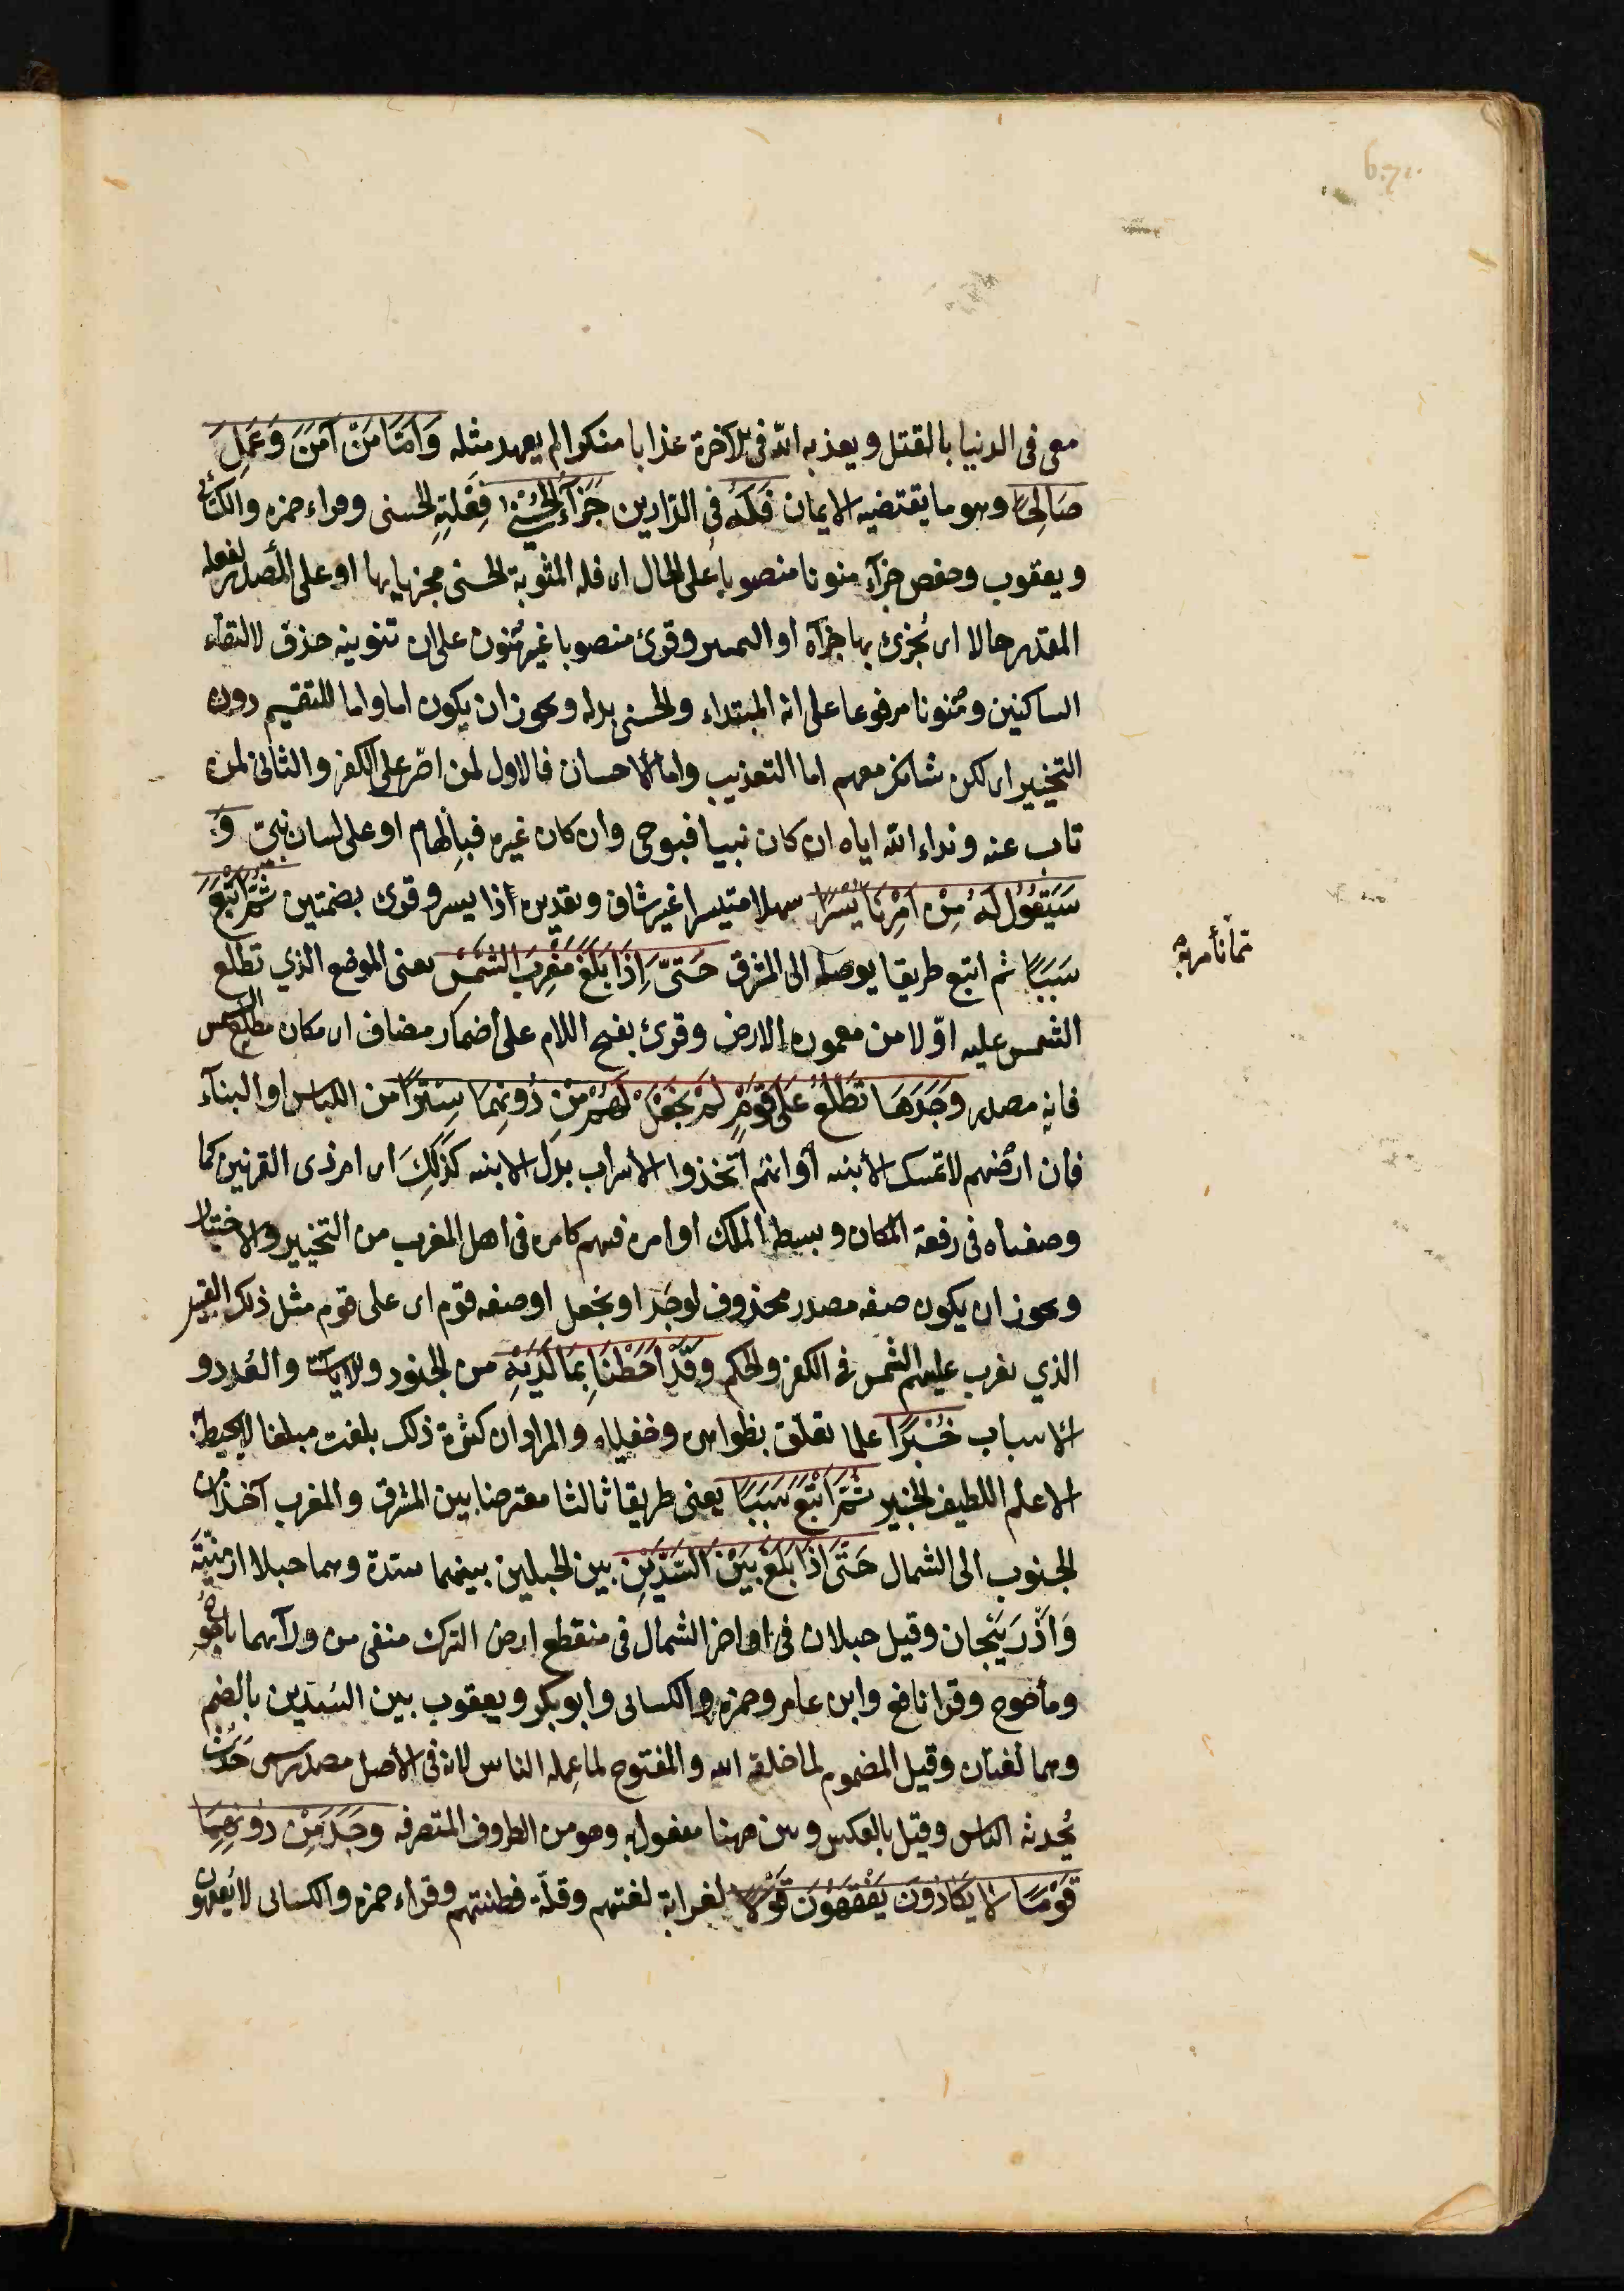 معى فى الدنيا بالقتل ويعذبه الله فى الآخرة عذابا منكرا لم يعهد مثله وَاَمَّا مَنْ آمَنَ وَعَمِلَ
صَالِحًا وهو ما يقتضيه الايمان فَلَهُ فى الدّارين جَزَآءً الحُسْنٰى فِعْلَتِهِ الحسنى وقراء حمزه والكسائى
ويعقوب وحفص جزآء منونا منصوبا على الحال اى فله المثوبة الحسنى مجزيا بها او على المصدر لفعله
المقدر حالا اى يُجزى بها جزآء او التمييز وقرئ منصوبا غير مُنون على ان تنوينه حذف لالتقاء
الساكنين ومُنونا مرفوعا على انه المبتداء والحسنى بدله ويجوز ان يكون اما واما للتقسيم دون
التخيير اى لكن شانك معهم اما التعذيب واما الاحسان فالاول لمن اصّر على الكفر والثانى لمن
تاب عنه ونداء الله اياه ان كان نبيا فبوحى وان كان غيره فبالهام او على لسان نبىّ وَ
سَيَقُولُ لَهُ مِنْ اَمْرِنَا يُسْرًا سهلا متيسرا غير شاق وتقديره ذا يسر وقرئ بضمتين ثُمَّ اَتْبَعَ
سَبَبًا ثم اتبع طريقا يوصله الى المشرق حَتىَّ اِذَا بَلَغَ مَغْرِبَ الشَّمْسِ يعنى الموضع الذي تطلع
الشمس عليه اوّلا من معموره الارض وقرئ بفتح اللام على اضمار مضاف اى مكان مطلع الشمس
فانه مصدر وَجَدَهَا تَطْلُعُ عَلَى قَوْمٍ لَمْ نَجْعَلْ لَهُمْ مِنْ دُونِهَا سِتْرًا من اللباس او البناء
فان ارضهم لا تمسك الأبنيه او انهم اتخذوا الأسراب بدل الابنيه كَذَلِكَ اى امر ذى القرنين كما
وصفناه فى رفعة المكان وبسطة الملك او امره فيهم كامره فى اهل المغرب من التخيير والاختيار
ويجوز ان يكون صفه مصدر محذوف لوجَد او نجعل او صفه قوم اى على قوم مثل ذلك القبيل
الذي تغرب عليهم الشمس فى الكفر والحكم وَقَدْ اَحَطْنَا بِمَا لَدَيْهِ من الجنود والآيات والعُدد و
الاسباب خُبْرًا علما تعلّق بظواهره وخفاياه والمراد ان كثرة ذلك بلغت مبلغا لا يحيط به
الا علم اللطيف الخبير ثُمَّ اَتْبَعَ سَبَبًا يعنى طريقا ثالثا معترضا بين المشرق والمغرب آخذا من
الجنوب الى الشمال حَتَّى اِذَا بَلَغَ بَيْنَ السَّدَّيْنِ بين الجبلين بينهما سدّه وهما جبلا ارمنيّة
وَاَذْرَبَيْجان وقيل جبلان فى اواخر الشمال فى منقطع ارض الترك منفى من ورآئهما ياجوج
ومأجوج وقرا نافع وابن عامر وحمزه والكسائى وابو بكر ويعقوب بين السُّدّين بالضم
وهما لغتان وقيل المضموم لما خلقه الله والمفتوح لما عمله الناس لانه فى الأصل مصدر سمى حَدَث
يُحدثه الناس وقيل بالعكس وبين ههنا مفعول به وهو من الظروف المتصرفه وَجَدَ مِنْ دُونِهِمَا
قَوْمًا لاَ يَكَادُونَ يَفْقَهُوْنَ قَوْلاً لغرابة لغتهم وقلّة فطنتهم وقراء حمزه والكسائى لا يُفقهون